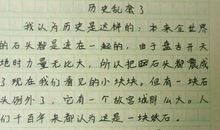 历史乱套了
我认为历史是这样的：本来全世界
的石头都是连在一起的，由于盘古开天
地时力量太大，所以把四石头都震成
了现在我们看见的小块块，但有一块石
头例外了，它有一个故宫城那么大。人
们千百年来都认为这是一块铁石。